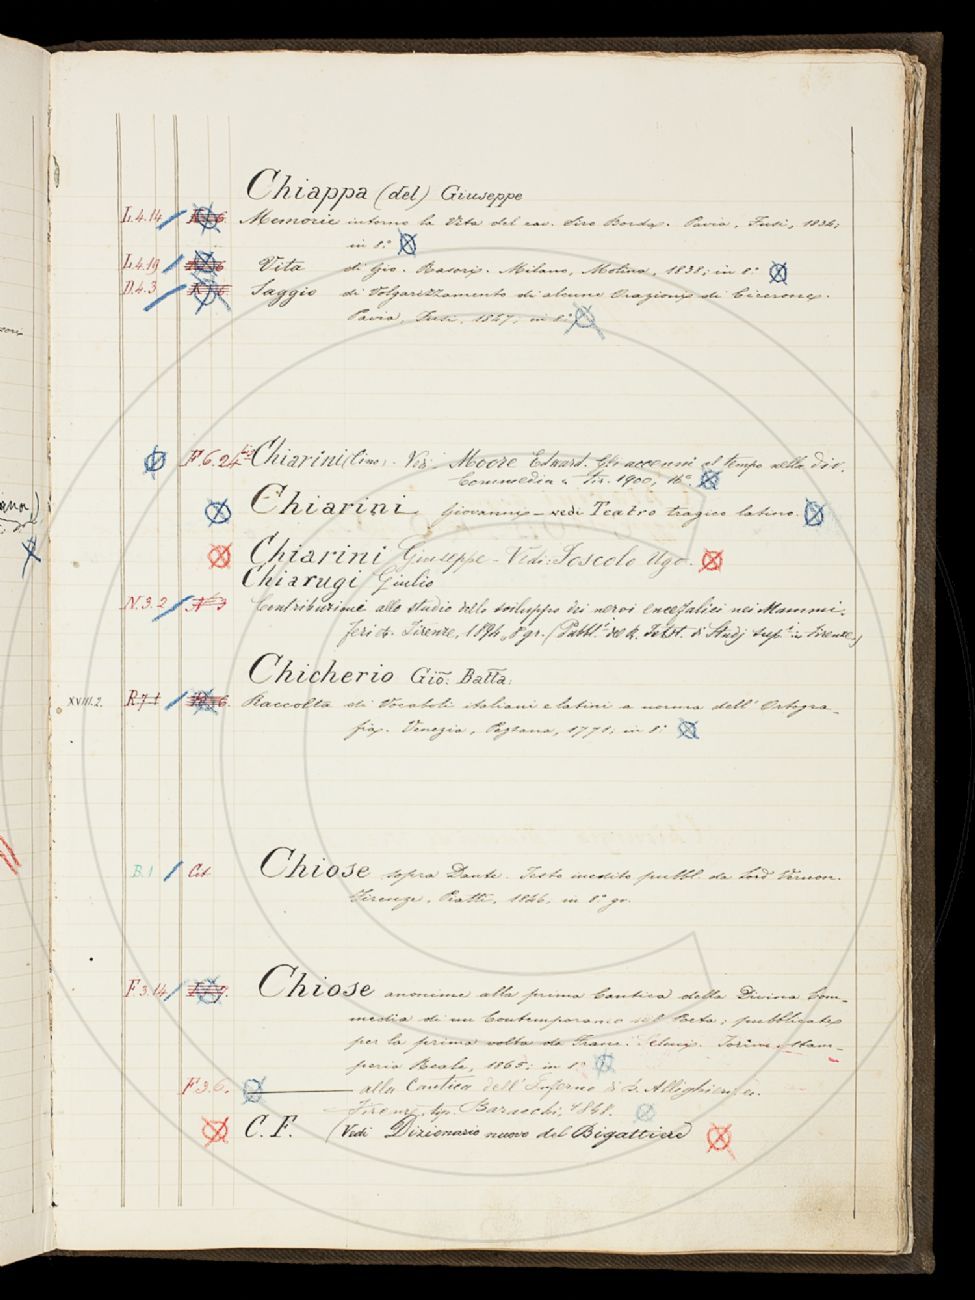 Chiappa (del) Giuseppe
L.4.14 Memorie intorno la Vita del cav. Siro Borda. Pavia, Fusi, 1834;
in 8°
L.4.19 Vita di Gio. Rasori. Milano, Molina, 1838; in 8°
D.4.3 Saggio di Volgarizzamento di alcune Orazioni di Cicerone.
Pavia, Fusi, 1847, in 8°
F.6.24 Chiarini Cino. Vedi Moore Edward. Gli accenni al tempo nella Div.
Commedia 1900, 16°.
Chiarini Giovanni - vedi Teatro tragico latino.
Chiarini Giuseppe - Vedi: Foscolo Ugo.
Chiarugi Giulio
N.3.2 Contribuzioni allo studio dello sviluppo dei nervi encefalici nei Mammi-
feri &. Firenze, 1894, 8 gr. (Pubbl. del R. Istit. di Studj sup. in Firenze)
Chicherio Gio: Batta:
XVIII.2. R.7.1 Raccolta di Vocaboli italiani e latini a norma dell' Ortogra-
fia. Venezia, 1771; in 8°
B.1 Cit Chiose sopra Dante. Testo inedito pubbl. da Lord Vernon.
Firenze, Piatti, 1846, in 8° gr.
F.3.14 Chiose anonime alla prima Cantica della Divina Com-
media di un Contemporaneo del Poeta; pubblicate
per la prima volta da Franc. Selmi. Torino, Stam-
peria Reale, 1865; in 8°
F.3.6. alla Cantica dell'Inferno di D. Allighieri &.
Firenze, tip. Baracchi, 1848.
C. F. (Vedi Dizionario nuovo del Bigattiere)